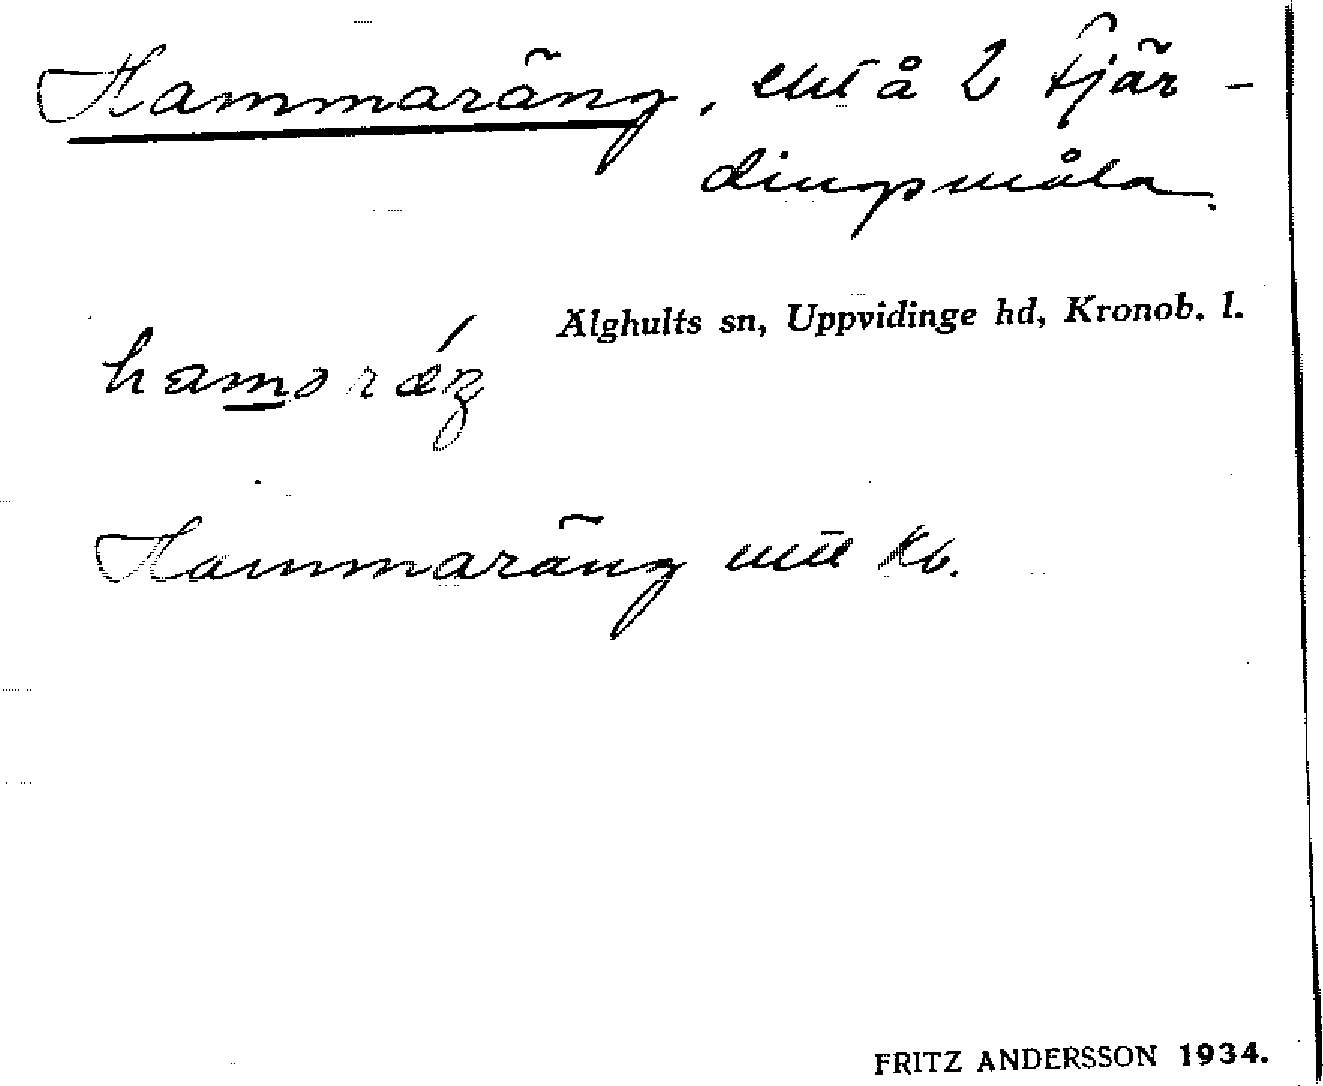 Hammaräng, ent å 2 Fjär-
dingsmåla.
Älghults sn, Uppvidinge hd, Kronob. l.
Hammaräng utel kb.
FRITZ ANDERSSON 1934.